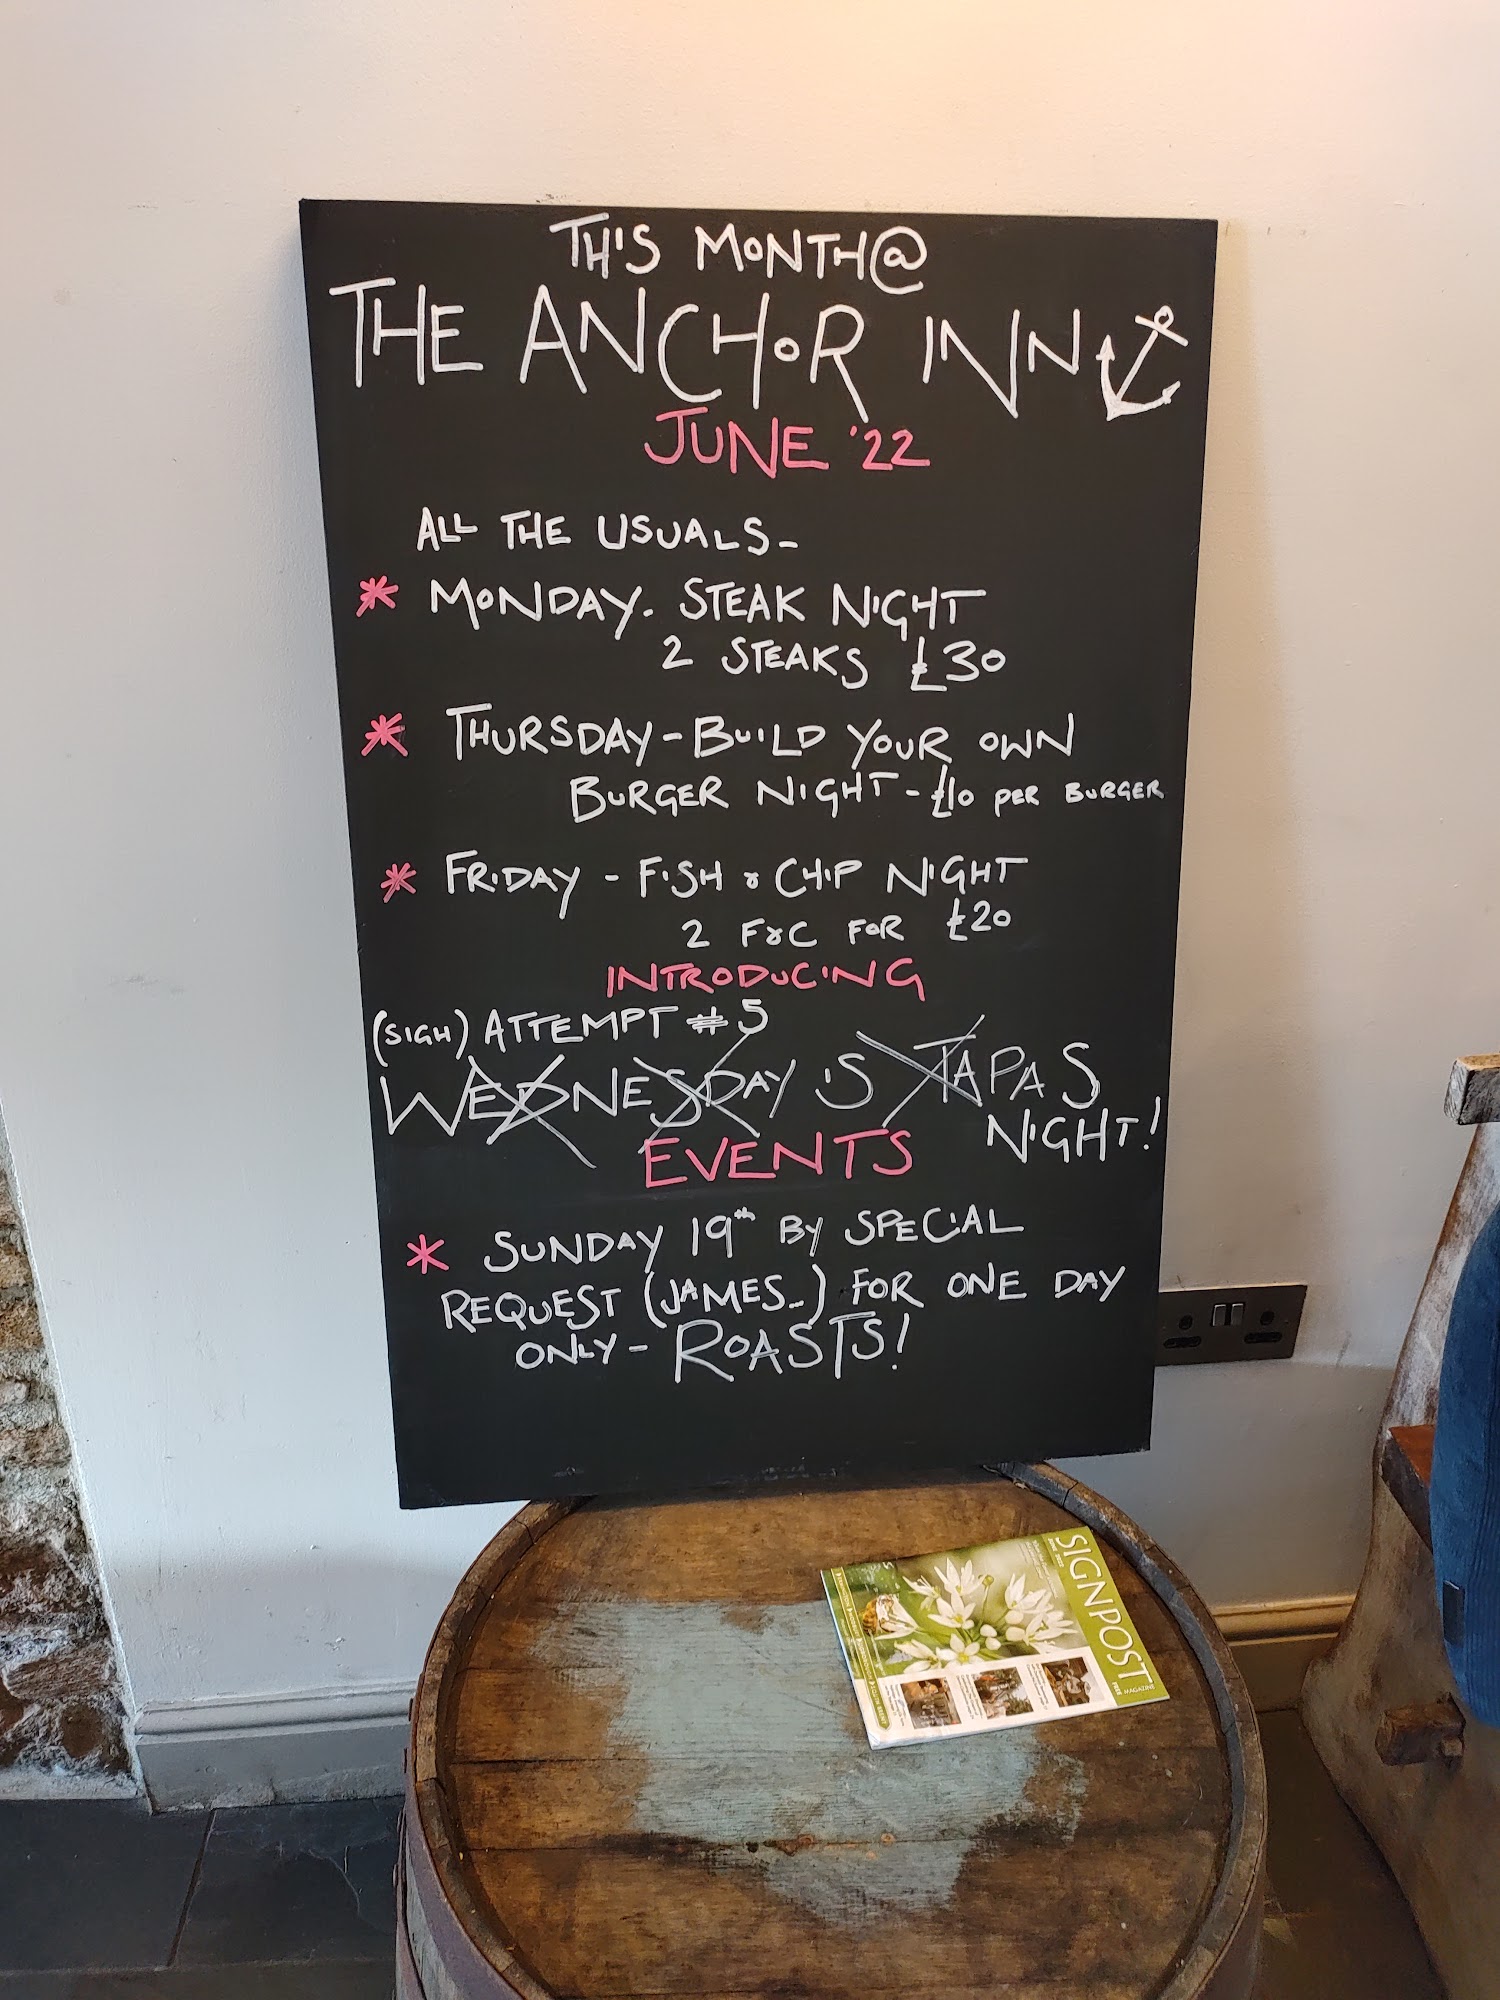 THIS MONTH@
THE ANCHOR INN
JUNE '22
ALL THE USUALS-
* MONDAY. STEAK NIGHT
2 STEAKS £30
* THURSDAY - BUILD YOUR OWN
BURGER NIGHT - £10 PER BURGER
* FRIDAY - FISH & CHIP NIGHT
2 F&C FOR £20
INTRODUCING
(SIGH) ATTEMPT #5
WEDNESDAY IS TAPAS
NIGHT!
EVENTS
* SUNDAY 19th BY SPECIAL
REQUEST (JAMES..) FOR ONE DAY
ONLY - ROASTS!
SIGNPOST
JUNE 2022
FREE MAGAZINE